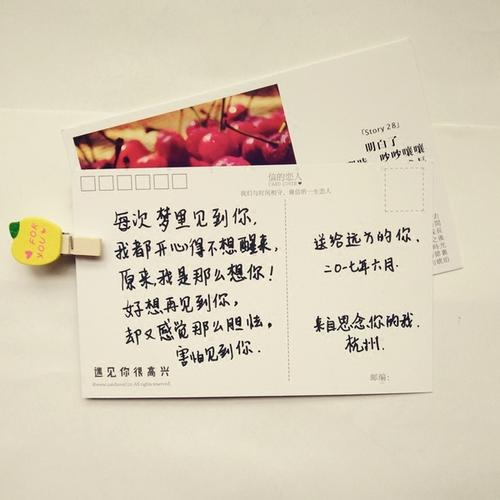 「Story 28」
明白了
信的恋人
CARD LOVER
我们与时间相守，做信的一生恋人
FOR
YOU
每次梦里见到你，
我都开心得不想醒来，
原来，我是那么想你！
好想再见到你，
却又感觉那么胆怯，
害怕见到你.
遇见你很高兴
All rights reserved.
送给远方的你，
二〇一七年六月.
来自思念你的我.
杭州.
邮编：